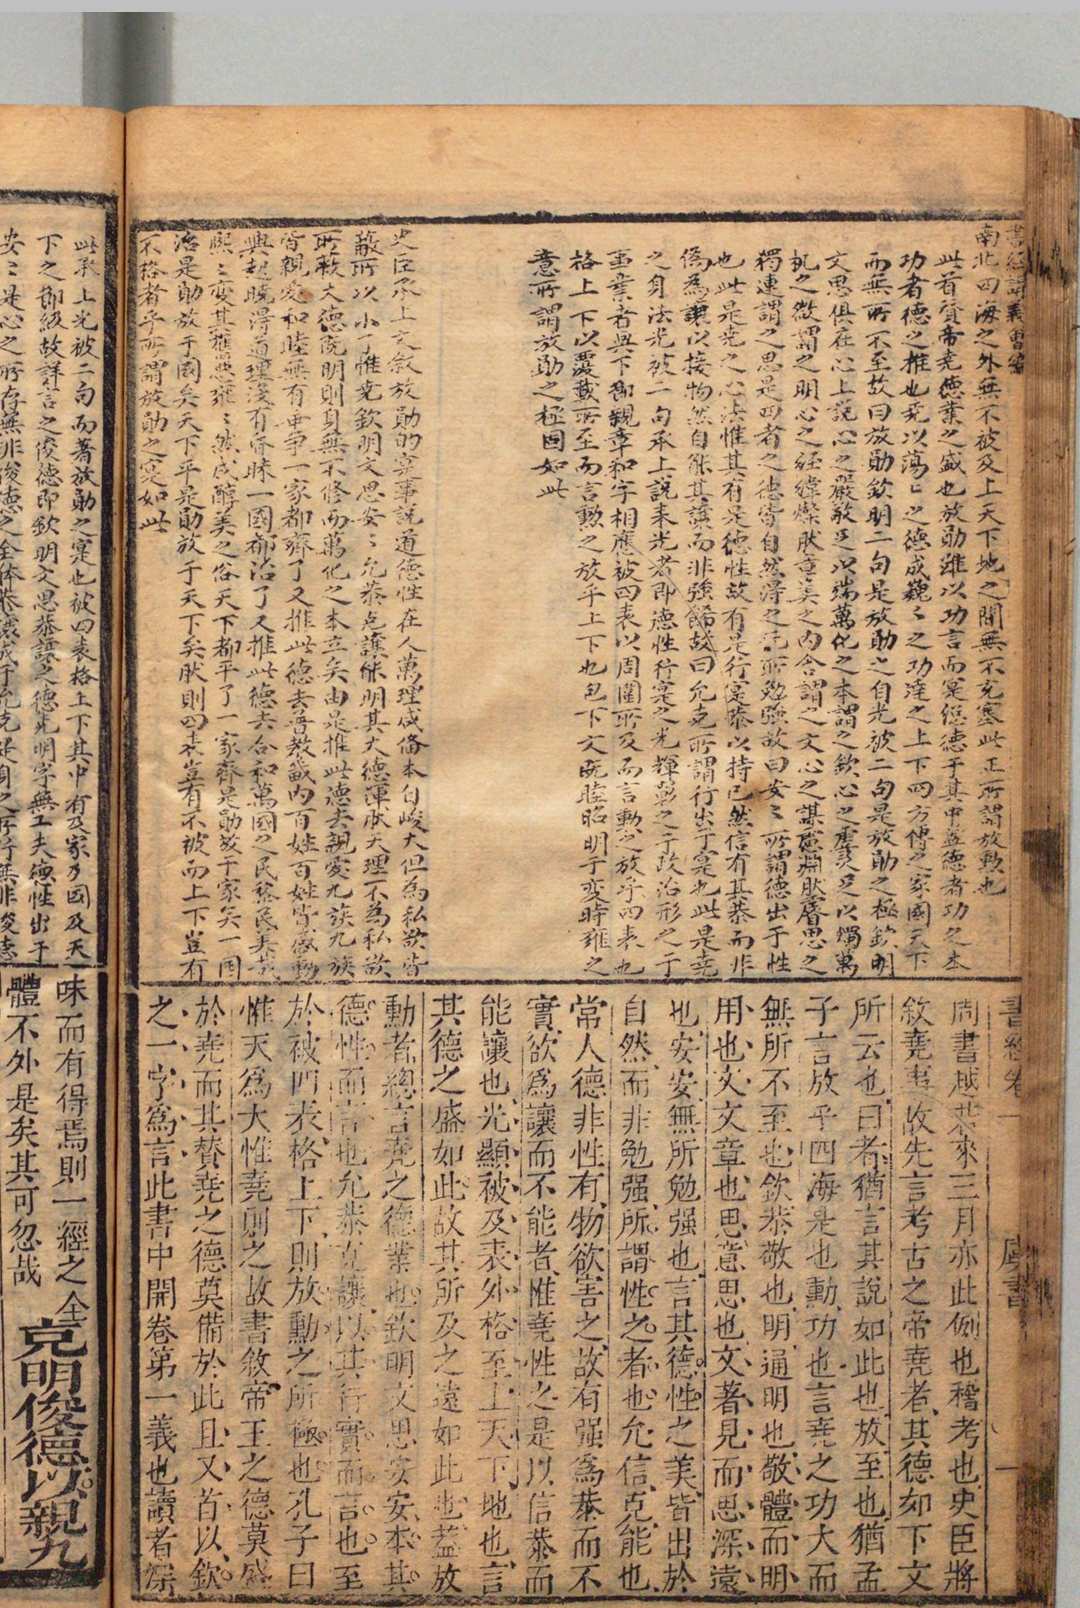 南北四海之外無不被及上天下地之間無不充塞此正所謂放勳也
此首贊帝堯德業之盛也放勛雖以功言而寔總德于其中蓋德者功之本
功者德之推也堯以蕩〻之德成巍〻之功達之上下四方傳之家國天下
而無所不至故曰放勛欽明二句是放勛之自光被二句是放勛之極欽明
文思俱在心上說心之嚴敬足以端萬化之本謂之欽心之虛灵足以燭萬
机之微謂之明心之經緯燦肰章美之內含謂之文心之謀慮淵肰睿思之
獨運謂之思是四者之德皆自然淂之无所勉強故曰安〻所謂德出于性
也此是堯之心法惟其有是德性故有是行寔恭以持已然信有其恭而非
偽為讓以接物然自能其讓而非強餙故曰允克所謂行出于寔也此是堯
之身法光被二句承上說来光者即德性行寔之光輝彰之于政治形之于
事業者與下卽親章和字相應被四表以周圍所及而言勳之放乎四表也
格上下以覆載所至而言勲之放乎上下也包下文既睦昭明于变時雍之
意所謂放勛之極固如此
史臣承上文敘放勛的寔事說道德性在人萬理咸俻本自峻大但為私欲皆
蔽所以小了惟堯欽明文思安〻允恭克讓能明其大德渾肰天理不為私欲
所蔽大德既明則身無不修而萬化之本立矣由是推此德去親愛九族九族
皆親愛和睦無有乖爭一家都齊了又推此德去普教畿內百姓百姓皆感動
興起曉淂道理沒有昏昧一國都治了又推此德去合和萬國之民黎民
熙〻变其雍〻然成醇美之俗天下都平了一家齊是勛放于家矣一国
治是勛放于國矣天下平是勛放于天下矣肰則四表豈有不被而上下豈有
不格者乎所謂放勛之寔如此
周書越若來三月亦此例也稽考也史臣將
敘堯事故先言考古之帝堯者其德如下文
所云也曰者猶言其說如此也放至也猶孟
子言放乎四海是也勳功也言堯之功大而
無所不至也欽恭敬也明通明也敬體而明
用也文文章也思意思也文著見而思深遠
也安安無所勉强也言其德性之美皆出於
自然而非勉强所謂性之者也允信克能也
常人德非性有物欲害之故有强爲恭而不
實欲爲讓而不能者惟堯性之是以信恭而
能讓也光顯被及表外格至上天下地也言
其德之盛如此故其所及之遠如此也蓋放
勳者總言堯之德業也欽明文思安安本其
德性而言也允恭克讓以其行實而言也至
於被四表格上下則放勳之所極也孔子曰
惟天爲大惟堯則之故書敘帝王之德莫盛
於堯而其贊堯之德莫備於此且又首以欽
之一字爲言此書中開卷第一義也讀者深
書經卷一 虞書 一
此承上光被二句而著放勛之寔也被四表格上下其中有及家及國及天
下之節級故詳言之俊德即欽明文思恭讓之德克明字無工夫德性出于
安〻是心之所存無非峻德之全体恭讓成于允克是身之所行無非峻德
味而有得焉則一經之全
體不外是矣其可忽哉
克明俊德以親九